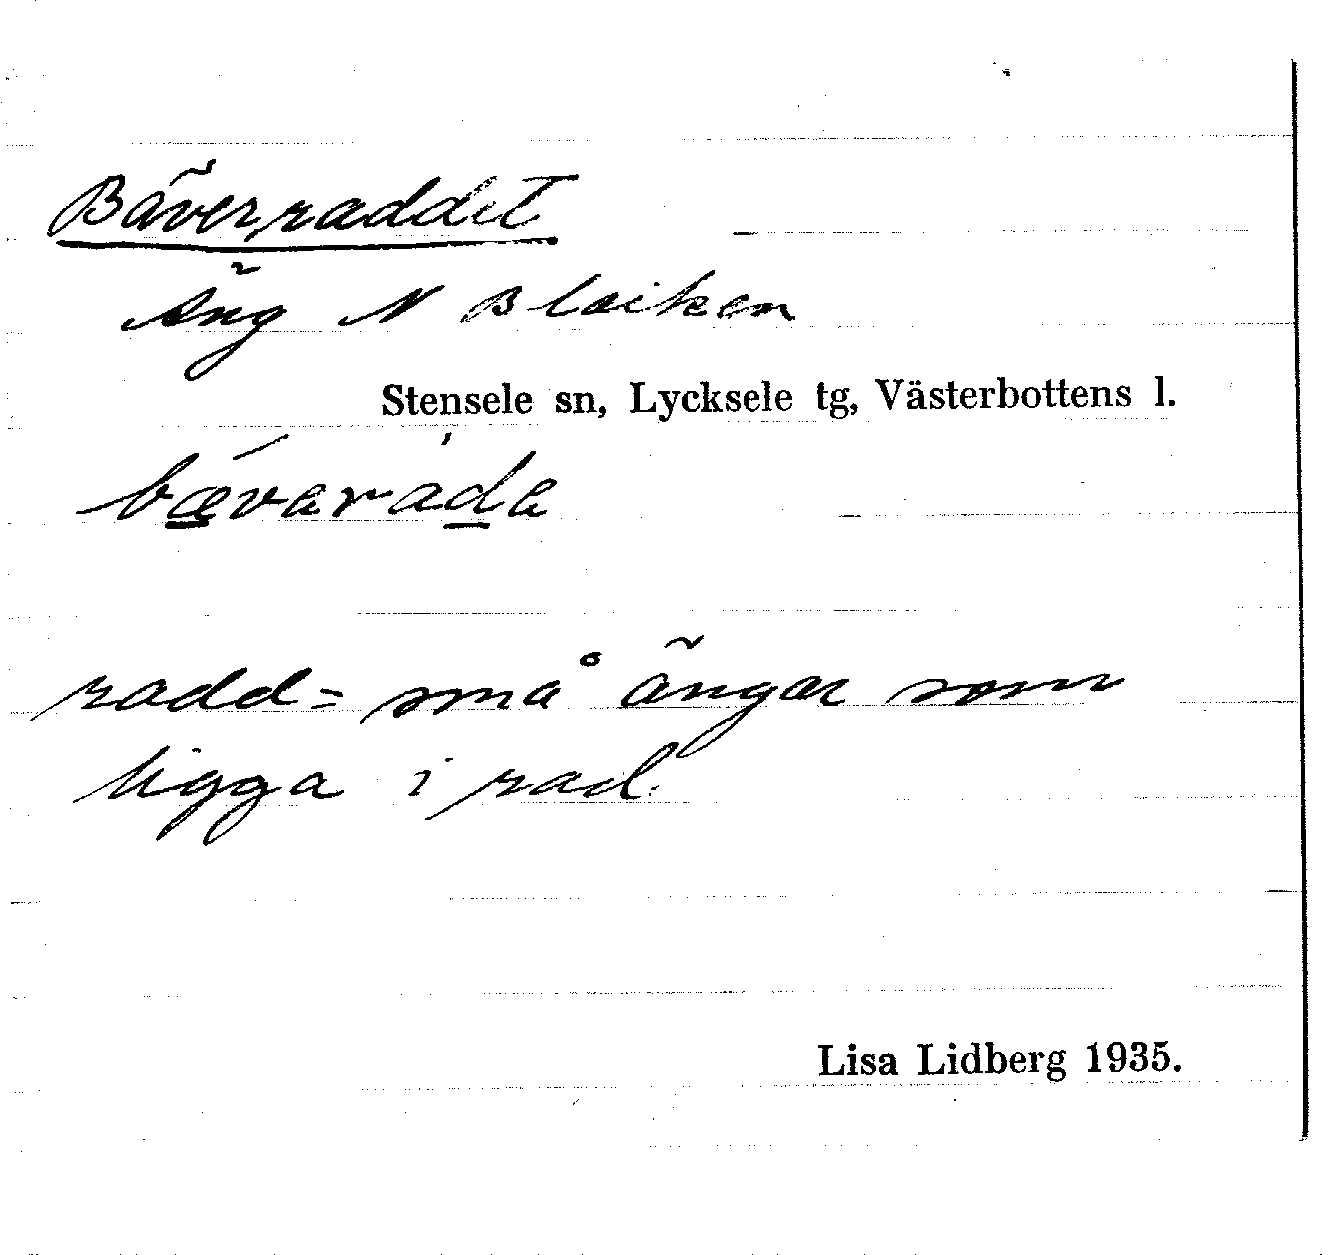 Bäverraddet
Äng N Blaiken
Stensele sn, Lycksele tg, Västerbottens l.
bǽvaráda
radd = små ängar som
ligga i rad.
Lisa Lidberg 1935.